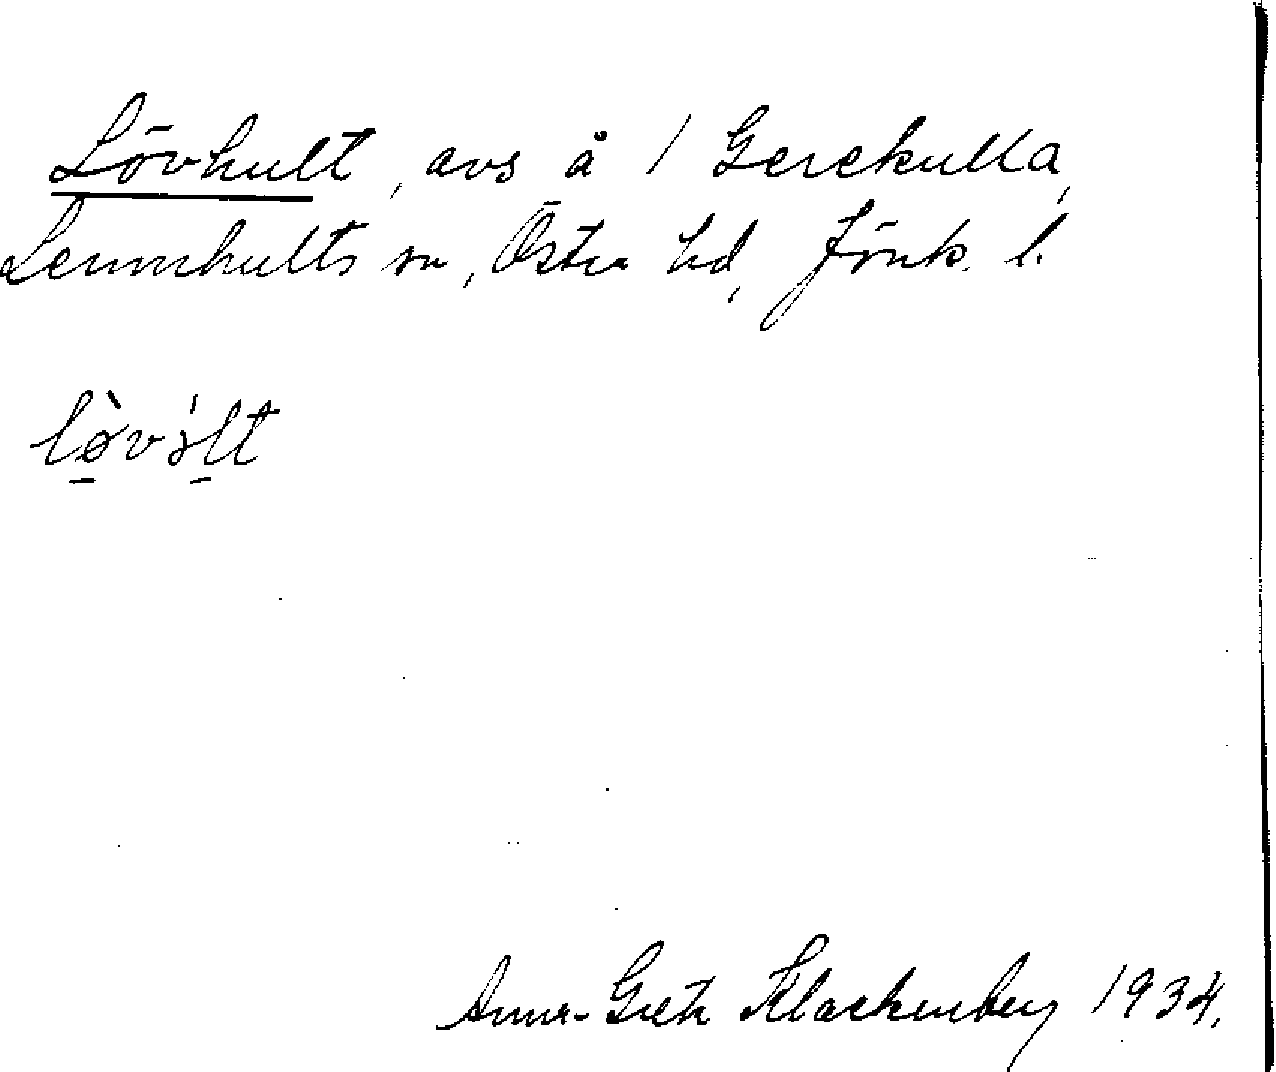 Lövhult, avs å 1 Gerekulla,
Lemnhults sn, Östra hd, Jönk. l.
lø̀vólt
Anna-Greta Klackenberg 1934.